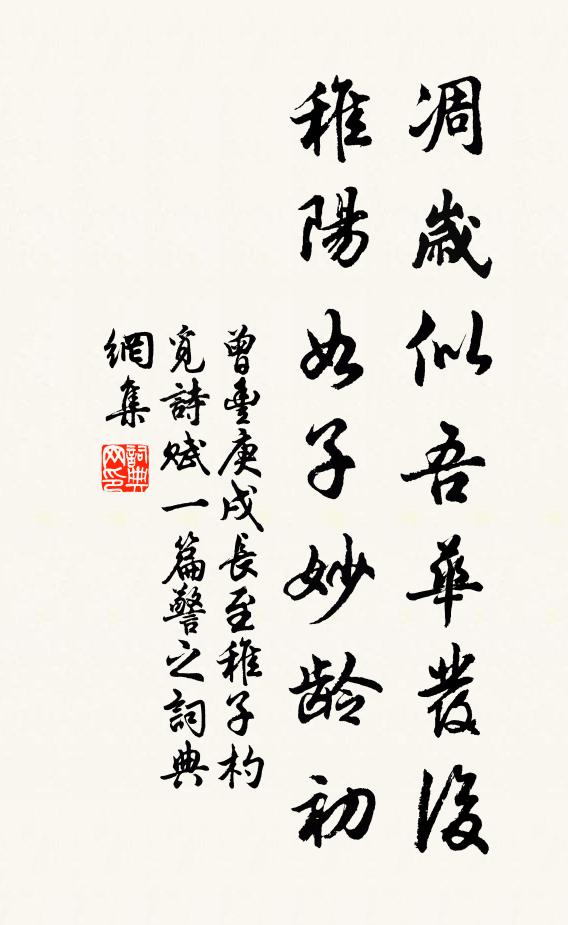 凋歲似吾華發後
稚陽如子妙齡初
曾豊庚戌長至稚子杓
覓詩賦一篇警之詞典
網集
詞典
网印